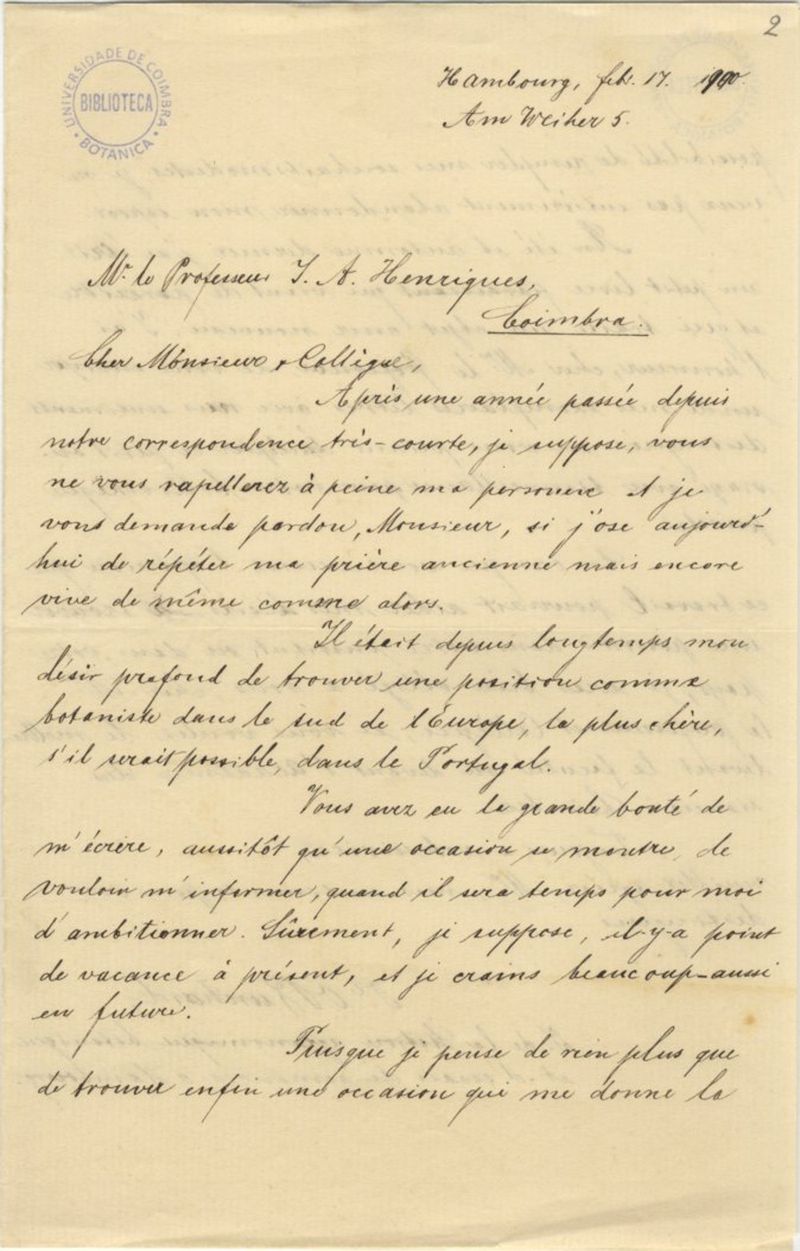 2
UNIVERSIDADE DE COIMBRA
BIBLIOTECA
BOTANICA
Hambourg, feb. 17. 1900
Am Weiher 5.
Mr. le Professeur J. A. Henriques,
Coimbra.
Cher Mónsieur & Collègue,
Après une année passée depuis
notre correspondence très-courte, je suppose, vous
ne vous rapellerez à peine ma personne et je
vous demande pardon, Monsieur, si j'ose aujourd'-
hui de répéter ma prière ancienne mais encore
vive de même comme alors.
Il était depuis longtemps mon
désir profond de trouver une position comme
botaniste dans le sud de l'Europe, la plus chère,
s'il serait possible, dans le Portugal.
Vous avez eu la grande bonté de
m'écrire, aussitôt qu'une occasion se montre, de
vouloir m'informer, quand il sera temps pour moi
d'ambitionner. Sûrement, je suppose, il-y-a point
de vacance à présent, et je crains beaucoup-aussi
en future.
Puisque je pense de rien plus que
de trouver enfin une occasion qui me donne la